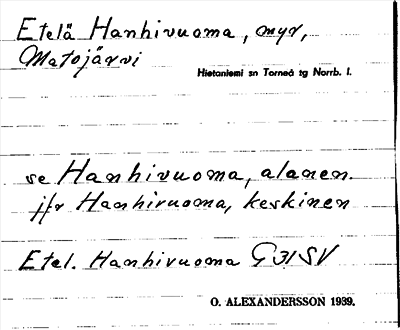 Etelä Hanhivuoma, myr,
Matojärvi
Hietaniemi sn Torneå tg Norrb. l.
se Hanhivuoma, alanen.
jfr Hanhivuoma, keskinen
Etel. Hanhivuoma G 31 SV
O. ALEXANDERSSON 1939.